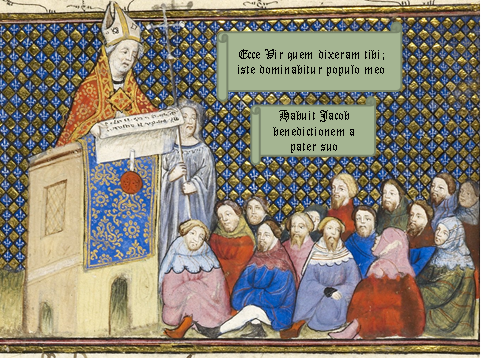 Ecce Vir quem dixeram tibi;
iste dominabitur populo meo
Habuit Jacob
benedictionem a
pater suo